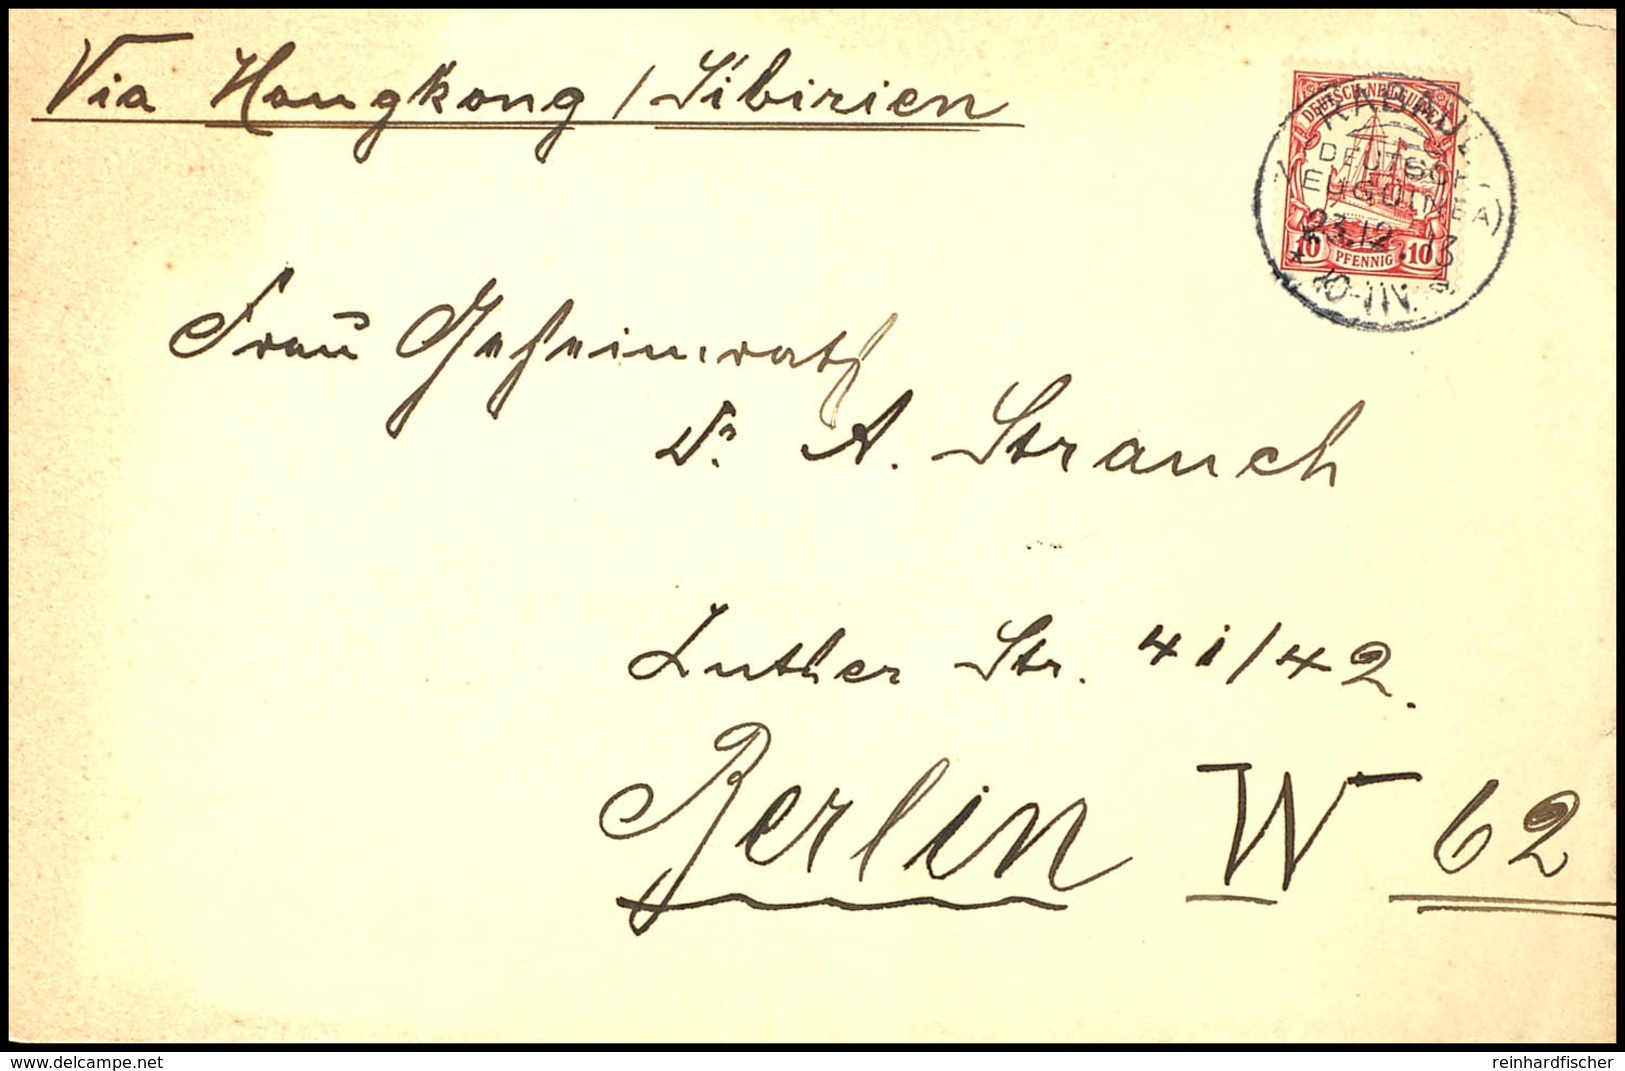 Via Hongkong / Sibirien
DEUTSCH-NEU-GUINEA
RABAUL
(DEUTSCH-
NEUGUINEA)
23.12.13
* 10-11V. *
10 PFENNIG 10
Frau Geheimrath
Dr. A. Strauch
Luther Str. 41/42.
Berlin W 62
www.delcampe.net
reinhardfischer